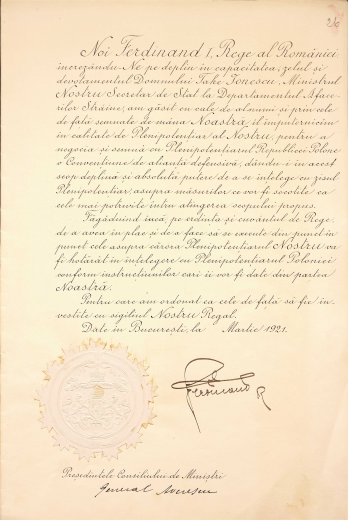 26
Noi Ferdinand I, Rege al României
încrezându-Ne pe deplin în capacitatea, zelul și
devotamentul Domnului Take Ionescu, Ministrul
Nostru Secretar de Stat la Departamentul Aface-
rilor Străine, am găsit cu cale de al numi și prin cele
de față semnate de mâna Noastră, îl împuternicim
în calitate de Plenipotențiar al Nostru, pentru a
negocia și semna cu Plenipotențiarul Republicei Polone
o Convențiune de alianță defensivă, dându-i în acest
scop deplină și absolută putere de a se înțelege cu zisul
Plenipotențiar, asupra măsurilor ce vor fi socotite ca
cele mai potrivite întru atingerea scopului propus.
Făgăduind încă, pe credința și cuvântul de Rege,
de a avea în plac și de a face să se execute din punct în
punct cele asupra cărora Plenipotențiarul Nostru va
fi hotărât în înțelegere cu Plenipotențiarul Poloniei
conform instrucțiunilor cari îi vor fi date din partea
Noastră.
Pentru care am ordonat ca cele de față să fie in-
vestite cu sigiliul Nostru Regal.
Date în București, la Martie 1921.
Ferdinand R
Președintele Consiliului de Miniștri
General Averescu